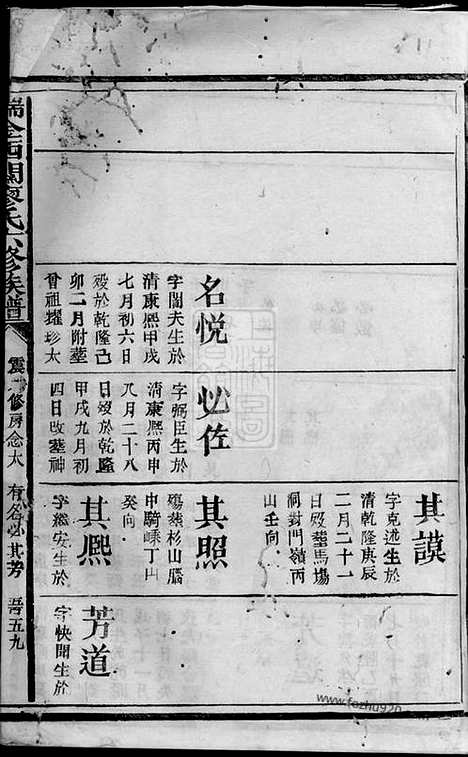 名悅
字閶夫生於
清康熙甲戌
七月初六日
歿於乾隆己
卯二月附塟
曾祖耀珍太
必佐
字弼臣生於
清康熙丙申
八月二十八
日歿於乾隆
甲戌九月初
四日改塟神
其謨
字克述生於
清乾隆庚辰
二月二十一
日歿塟馬塲
洞封門嶺丙
山壬向
其照
殤塟杉山腦
申騎嵊丁山
癸向
其熙
字緝安生於
芳道
字快聞生於
瑞金西關廖氏六修族譜
震一修房念太
有名必其芳
五九
www.fozhu920.